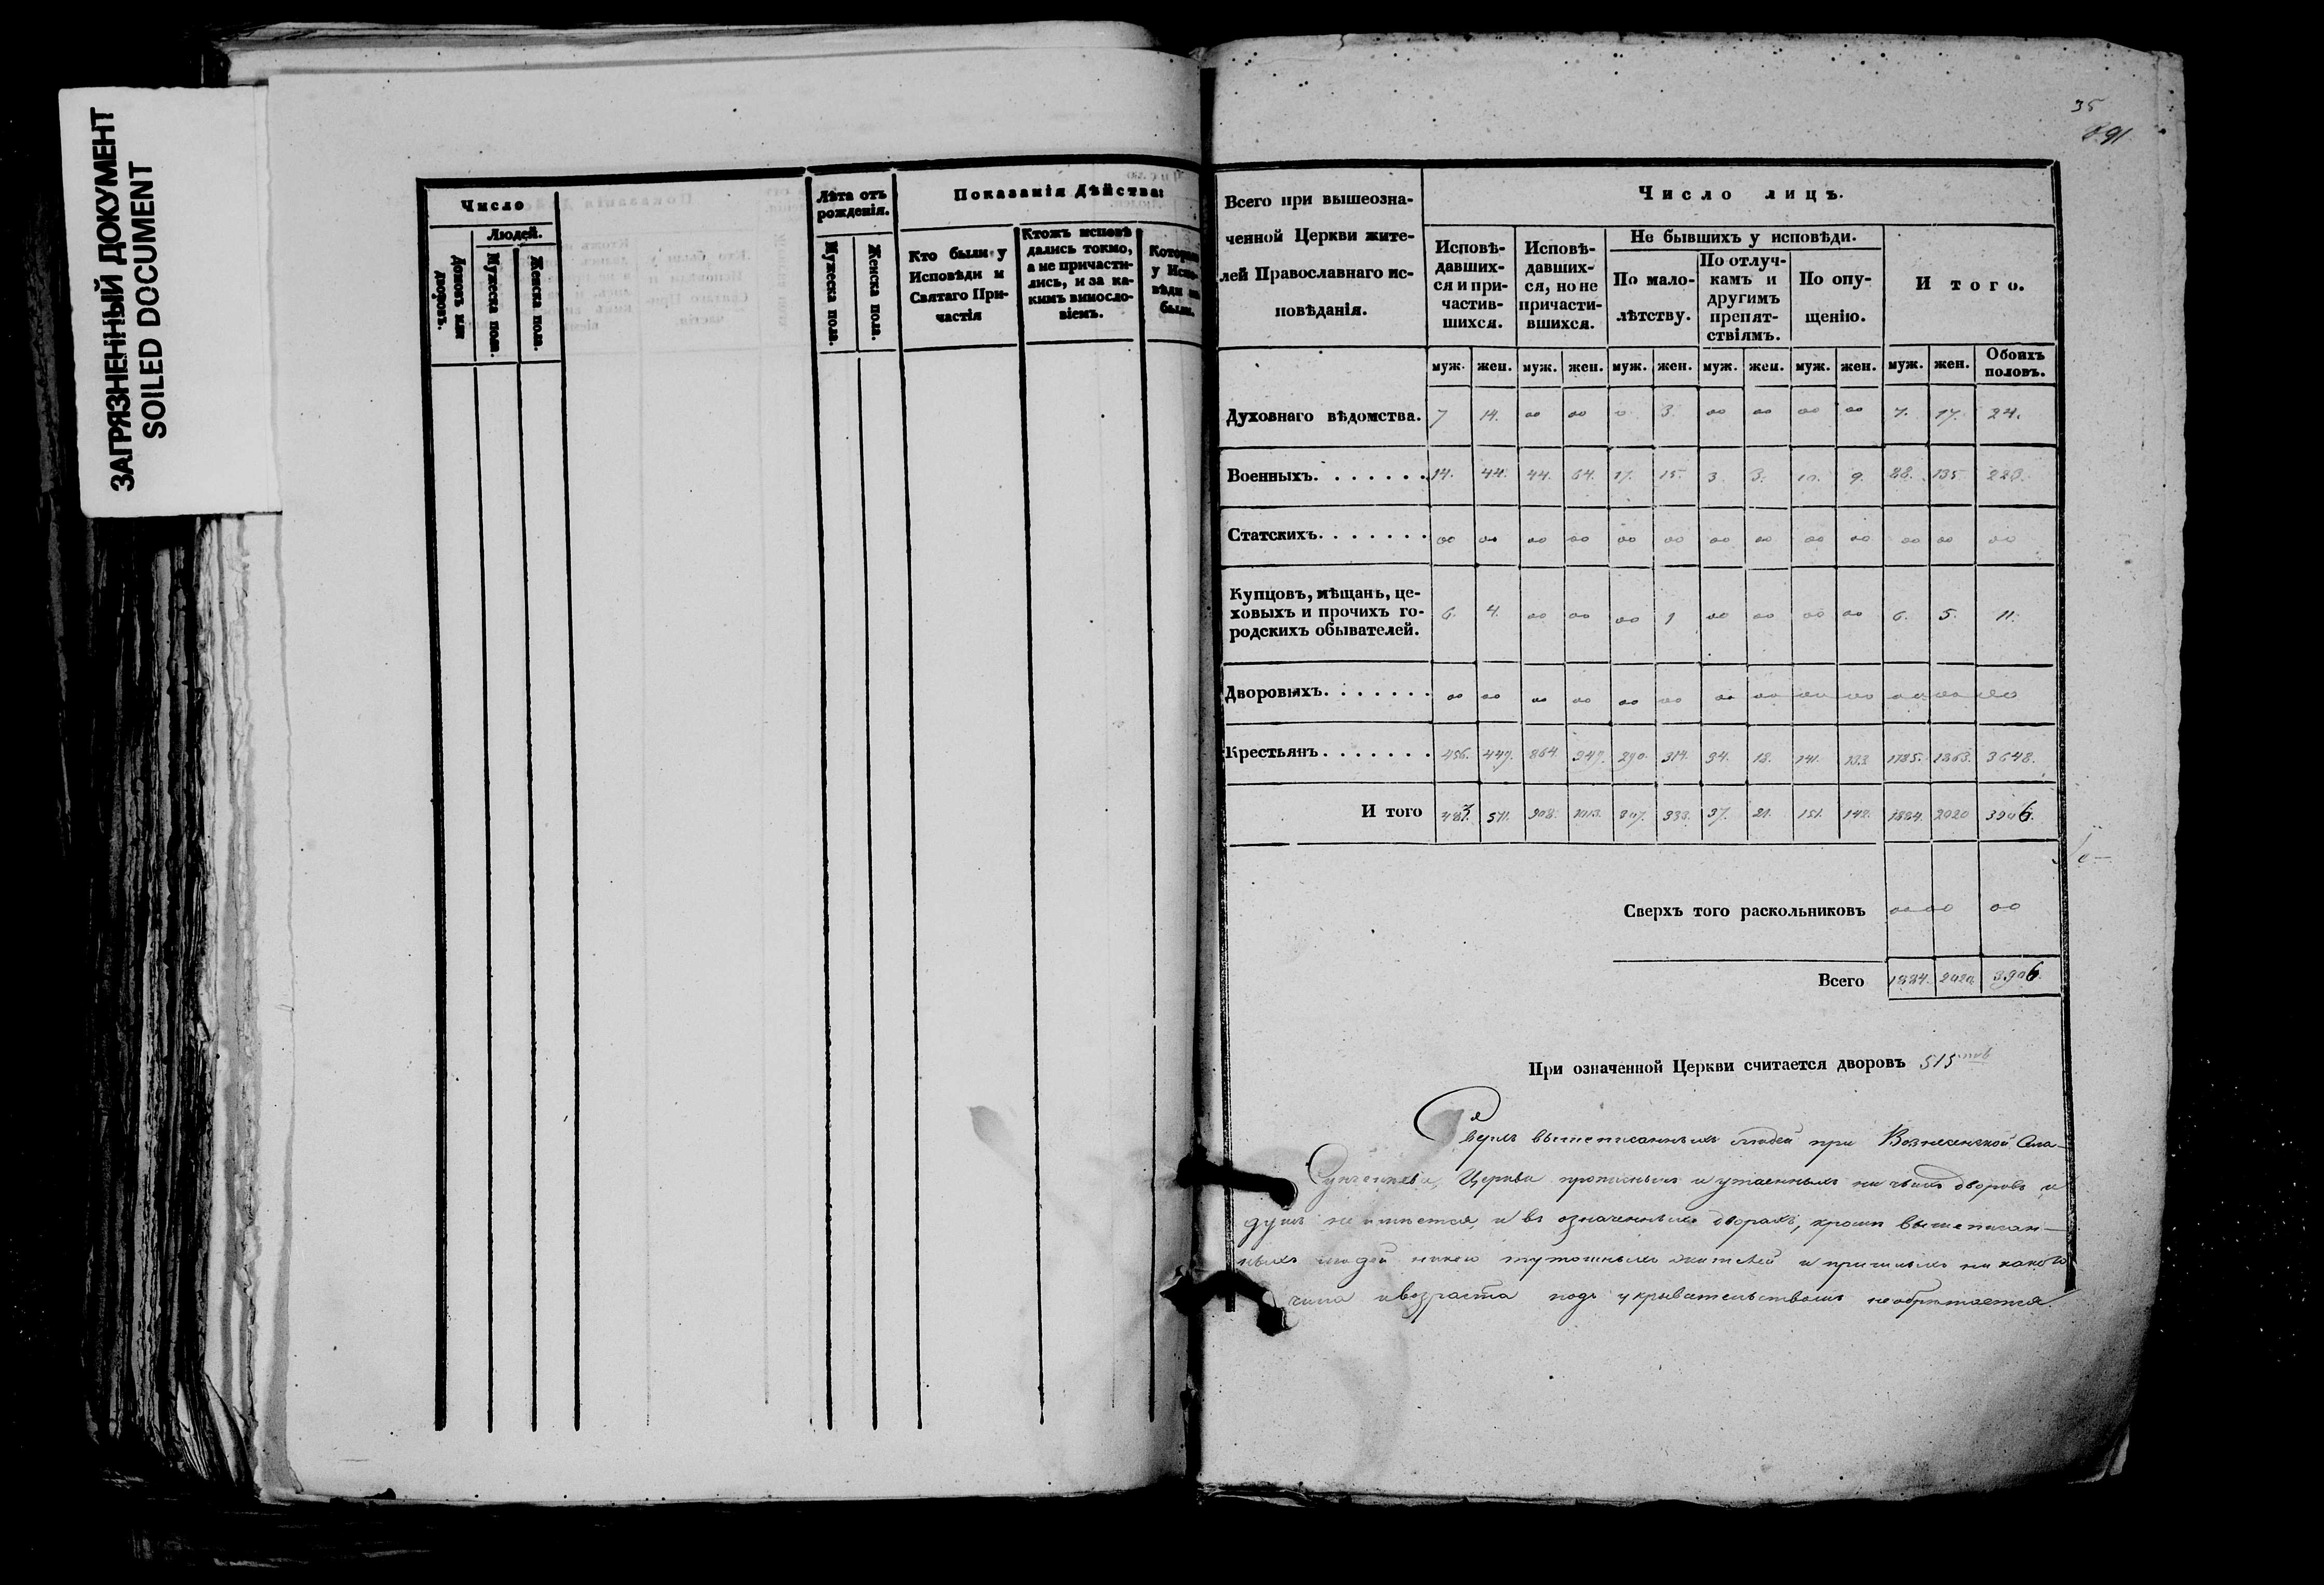 ЗАГРЯЗНЕННЫЙ ДОКУМЕНТ
SOILED DOCUMENT
Число
Людей.
Домовъ или дворовъ.
Мужеска пола.
Женска пола.
Лѣта отъ рожденія.
Мужеска пола.
Женска пола.
Показанія Дѣйства:
Кто были у
Исповѣди и
Святаго При-
частія
Ктожъ исповѣ
дались токмо,
а не причасти-
лись, и за ка-
кимъ винosло-
віемъ.
у Испо-
вѣди не
были.
35
Всего при вышеозна-
ченной Церкви жите-
лей Православнаго ис-
повѣданія.
Число лицъ.
Исповѣ-
давших-
ся и при-
частив-
шихся.
Исповѣ-
давших-
ся, но не
причасти-
вшихся.
Не бывшихъ у исповѣди.
По мало-
лѣтству.
По отлуч-
камъ и
другимъ
препят-
ствіямъ.
По опу-
щенію.
Итого.
муж. жен. муж. жен. муж. жен. муж. жен. муж. жен. муж. жен. Обоихъ половъ.
Духовнаго вѣдомства. 7 14. оо оо о 3. оо оо оо оо 7. 17. 24.
Военныхъ. . . . . . . 14. 44. 44. 64. 17. 15. 3. 3. 10. 9. 88. 135. 223.
Статскихъ. . . . . . . оо оо оо оо оо оо оо оо оо оо оо оо оо
Купцовъ, мѣщанъ, це-
ховыхъ и прочихъ го-
родскихъ обывателей. 6. 4. оо оо оо 1 оо оо оо оо 6. 5. 11.
Дворовыхъ. . . . . . . оо оо оо оо оо оо оо оо оо оо оо оо оо
Крестьянъ. . . . . . . 456. 447. 864. 947. 290. 314. 34. 18. 141. 133. 1785. 1863. 3648.
И того 511. 908. 1013. 333. 37. 21. 151. 142. 1884. 2020 3906.
Сверхъ того раскольниковъ оо оо оо
Всего 1884. 2020. 3906.
При означенной Церкви считается дворовъ 515
Сверхъ вышеписанныхъ людей при Вознесенской Села
Церкви прописныхъ и утаенныхъ ни чьихъ дворовъ и
душъ не имѣется, и въ означенныхъ дворахъ, кромѣ вышеписан-
ныхъ людей никого тутошныхъ жителей и пришлыхъ ни какого
чина и возраста подъ укрывательствомъ не обрѣтается.